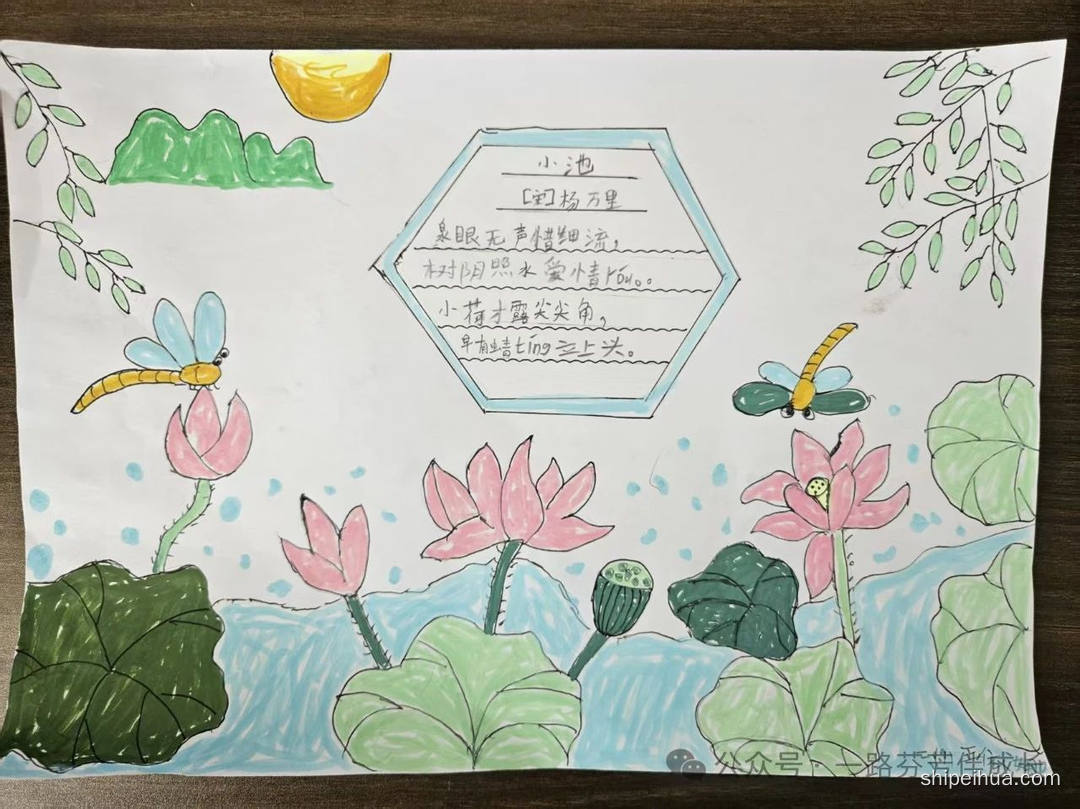 小池
[宋]杨万里
泉眼无声惜细流,
树阴照水爱情róu。
小荷才露尖尖角,
早有蜻tíng立上头。
公众号·一路芬芳伴成长
shipeihua.com